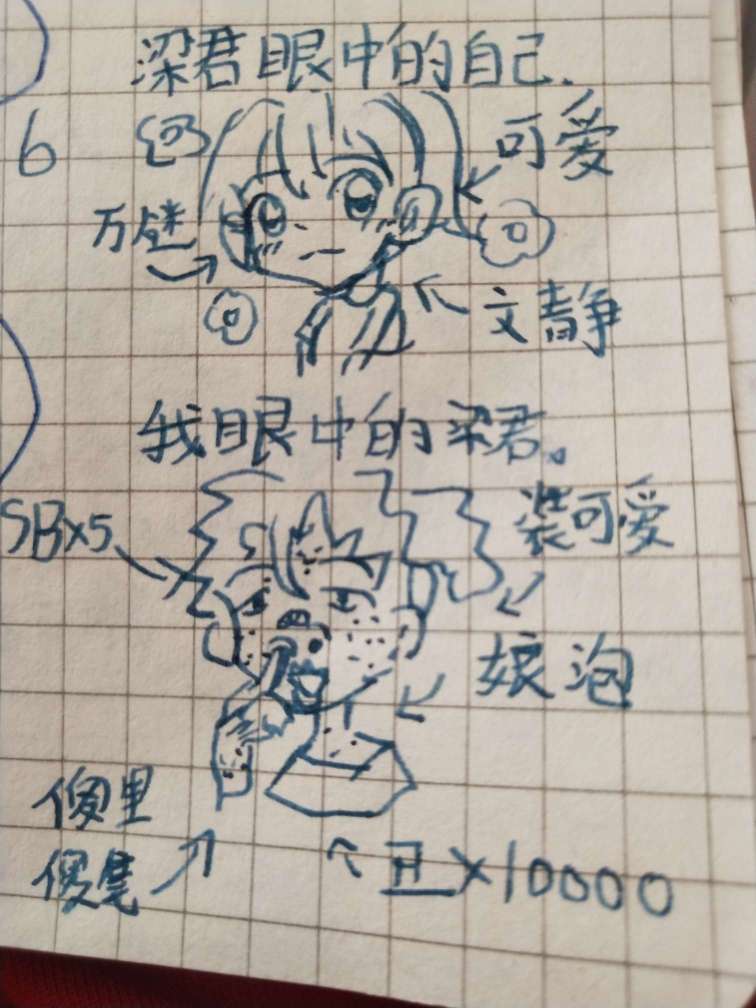 梁君眼中的自己.
6
可爱
文静
我眼中的梁君。
SB×5
装可爱
娘泡
傻里
傻气
丑×10000